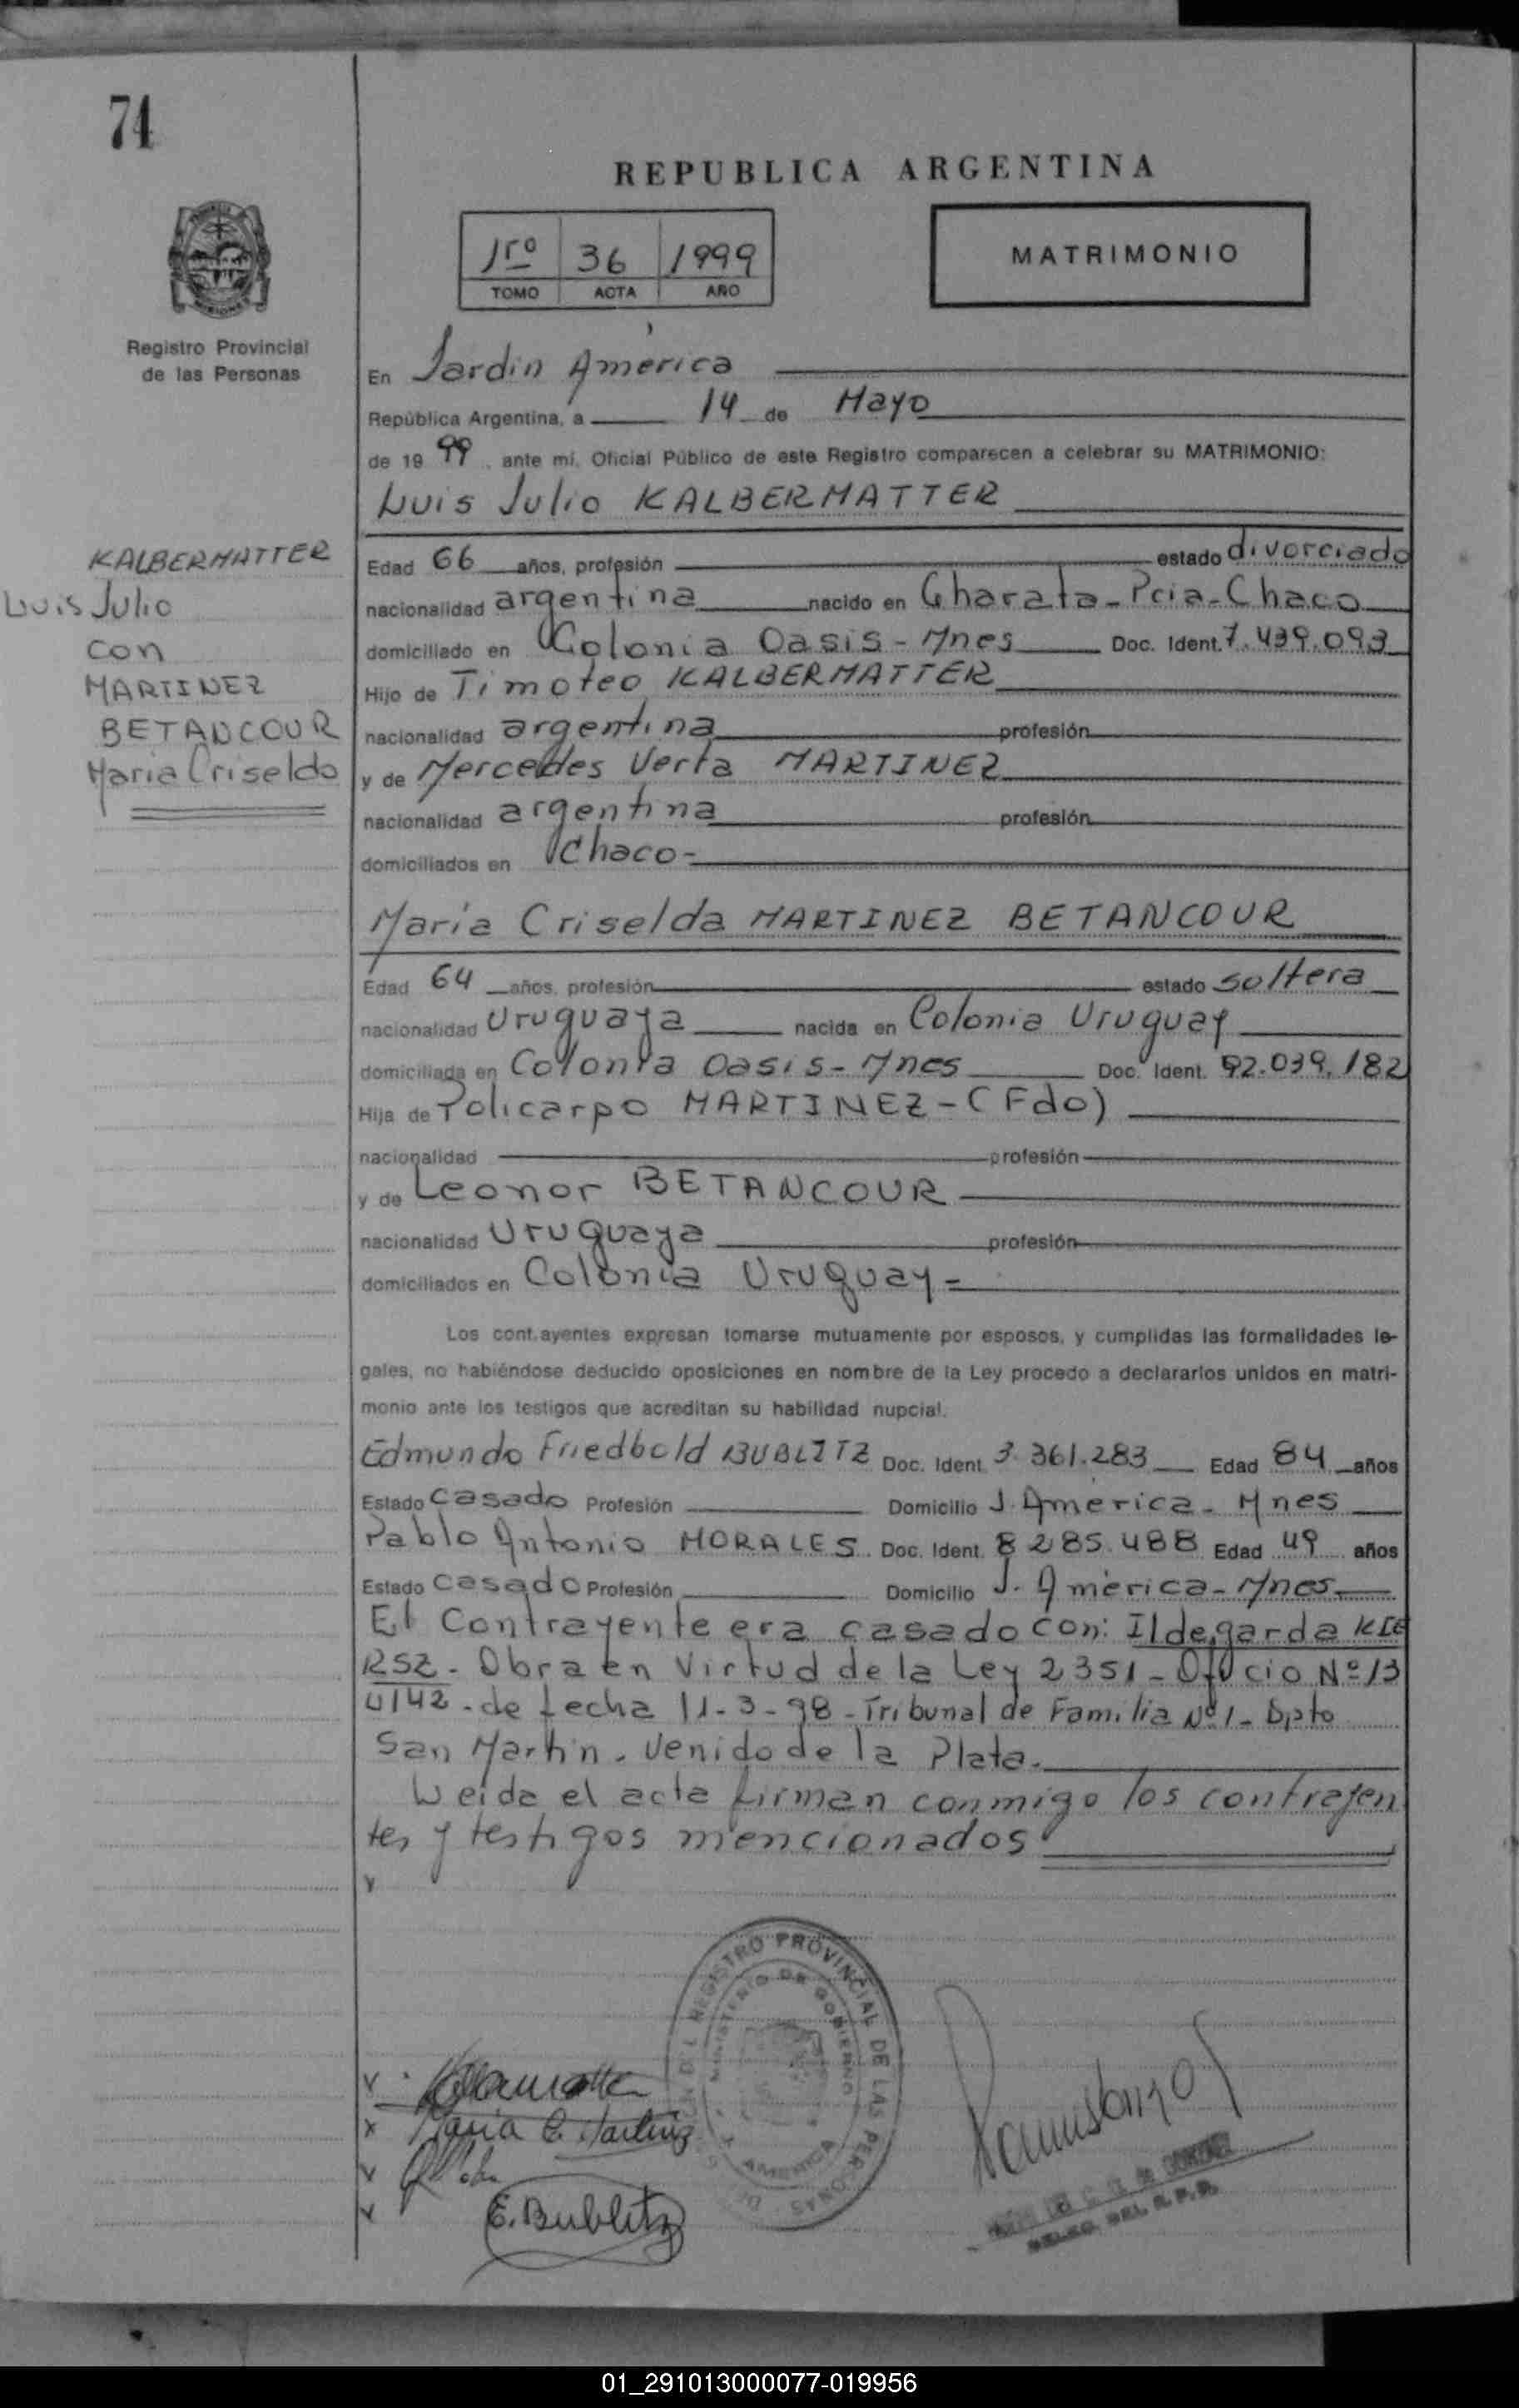 74
REPUBLICA ARGENTINA
1ro 36 1999
TOMO ACTA AÑO
MATRIMONIO
Registro Provincial
de las Personas
En Jardin América
República Argentina, a 14 de Mayo
de 19 99, ante mí, Oficial Público de este Registro comparecen a celebrar su MATRIMONIO:
Luis Julio KALBERMATTER
KALBERMATTER
Luis Julio
con
MARTINEZ
BETANCOUR
Maria Criselda
Edad 66 años, profesión estado divorciado
nacionalidad argentina nacido en Charata-Pcia-Chaco
domiciliado en Colonia Oasis-Mnes Doc. Ident. 7.439.093
Hijo de Timoteo KALBERMATTER
nacionalidad argentina profesión
y de Mercedes Verta MARTINEZ
nacionalidad argentina profesión
domiciliados en Chaco-
Maria Criselda MARTINEZ BETANCOUR
Edad 64 años, profesión estado soltera
nacionalidad Uruguaya nacida en Colonia Uruguay
domiciliada en Colonia Oasis-Mnes Doc. Ident. 92.039.182
Hija de Policarpo MARTINEZ-(Fdo)
nacionalidad profesión
y de Leonor BETANCOUR
nacionalidad Uruguaya profesión
domiciliados en Colonia Uruguay-
Los cont.ayentes expresan tomarse mutuamente por esposos, y cumplidas las formalidades le-
gales, no habiéndose deducido oposiciones en nombre de la Ley procedo a declararlos unidos en matri-
monio ante los testigos que acreditan su habilidad nupcial.
Edmundo Friedbold BUBLITZ Doc. Ident. 3.361.283 Edad 84 años
Estado casado Profesión Domicilio J. América-Mnes
Pablo Antonio MORALES Doc. Ident. 8 285.488 Edad 49 años
Estado casado Profesión Domicilio J. América-Mnes
El Contrayente era casado con: Ildegarda KIE
RSZ-Obra en Virtud de la Ley 2351-Oficio Nº 13
4142-de fecha 11-3-98-Tribunal de Familia Nº1-Dpto
San Martin. Venido de la Plata.
Leida el acta firman conmigo los contrayen
tes y testigos mencionados
DEL REGISTRO PROVINCIAL DE LAS PERSONAS
MINISTERIO DE GOBIERNO
AMERICA
Maria C. Martinez
E. Bublitz
DELEG. DEL R.P.P.
01_291013000077-019956